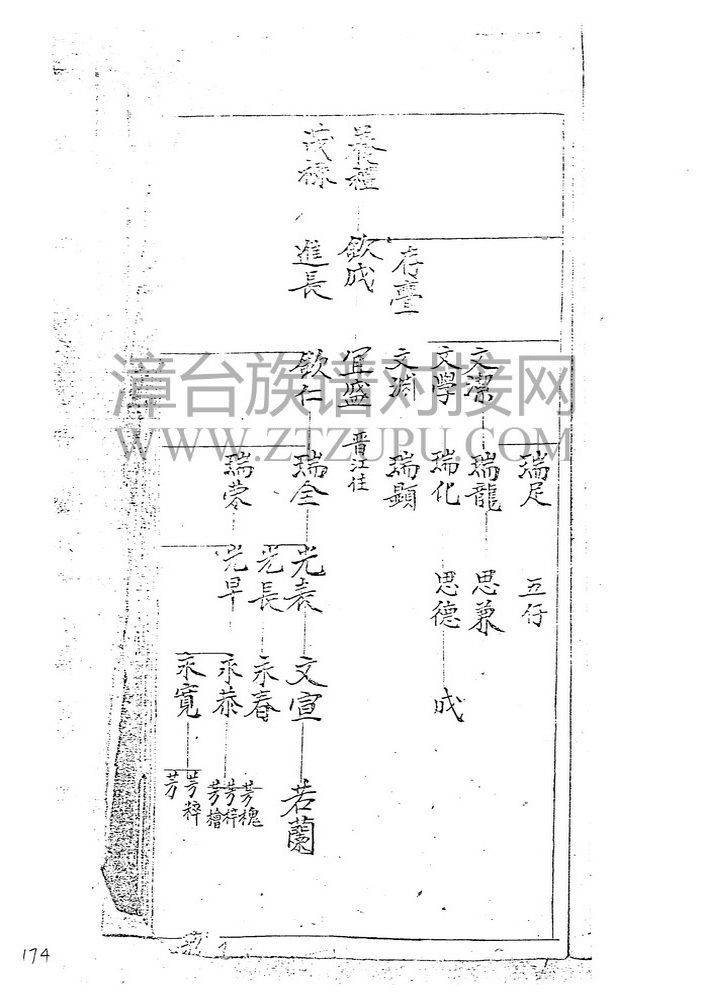 養禮
茂祿
存臺
欽成
進長
文潔
文學
文淵
宜盛 晋江住
欽仁
瑞足
瑞龍
瑞化
瑞顯
瑞全
瑞荣
五仔
思兼
思德
光表
光長
光早
成
文宣
永春
永恭
永寬
若蘭
芳槐
芳梓
芳檜
芳粹
芳
漳台族谱对接网
WWW.ZTZUPU.COM
174